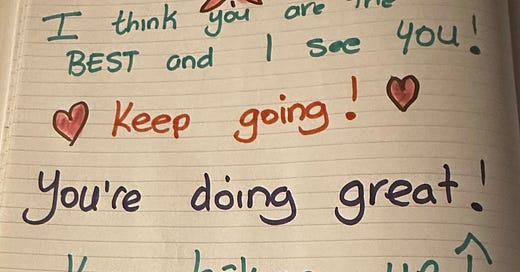 I think you are the
BEST and I see you!
Keep going!
You're doing great!